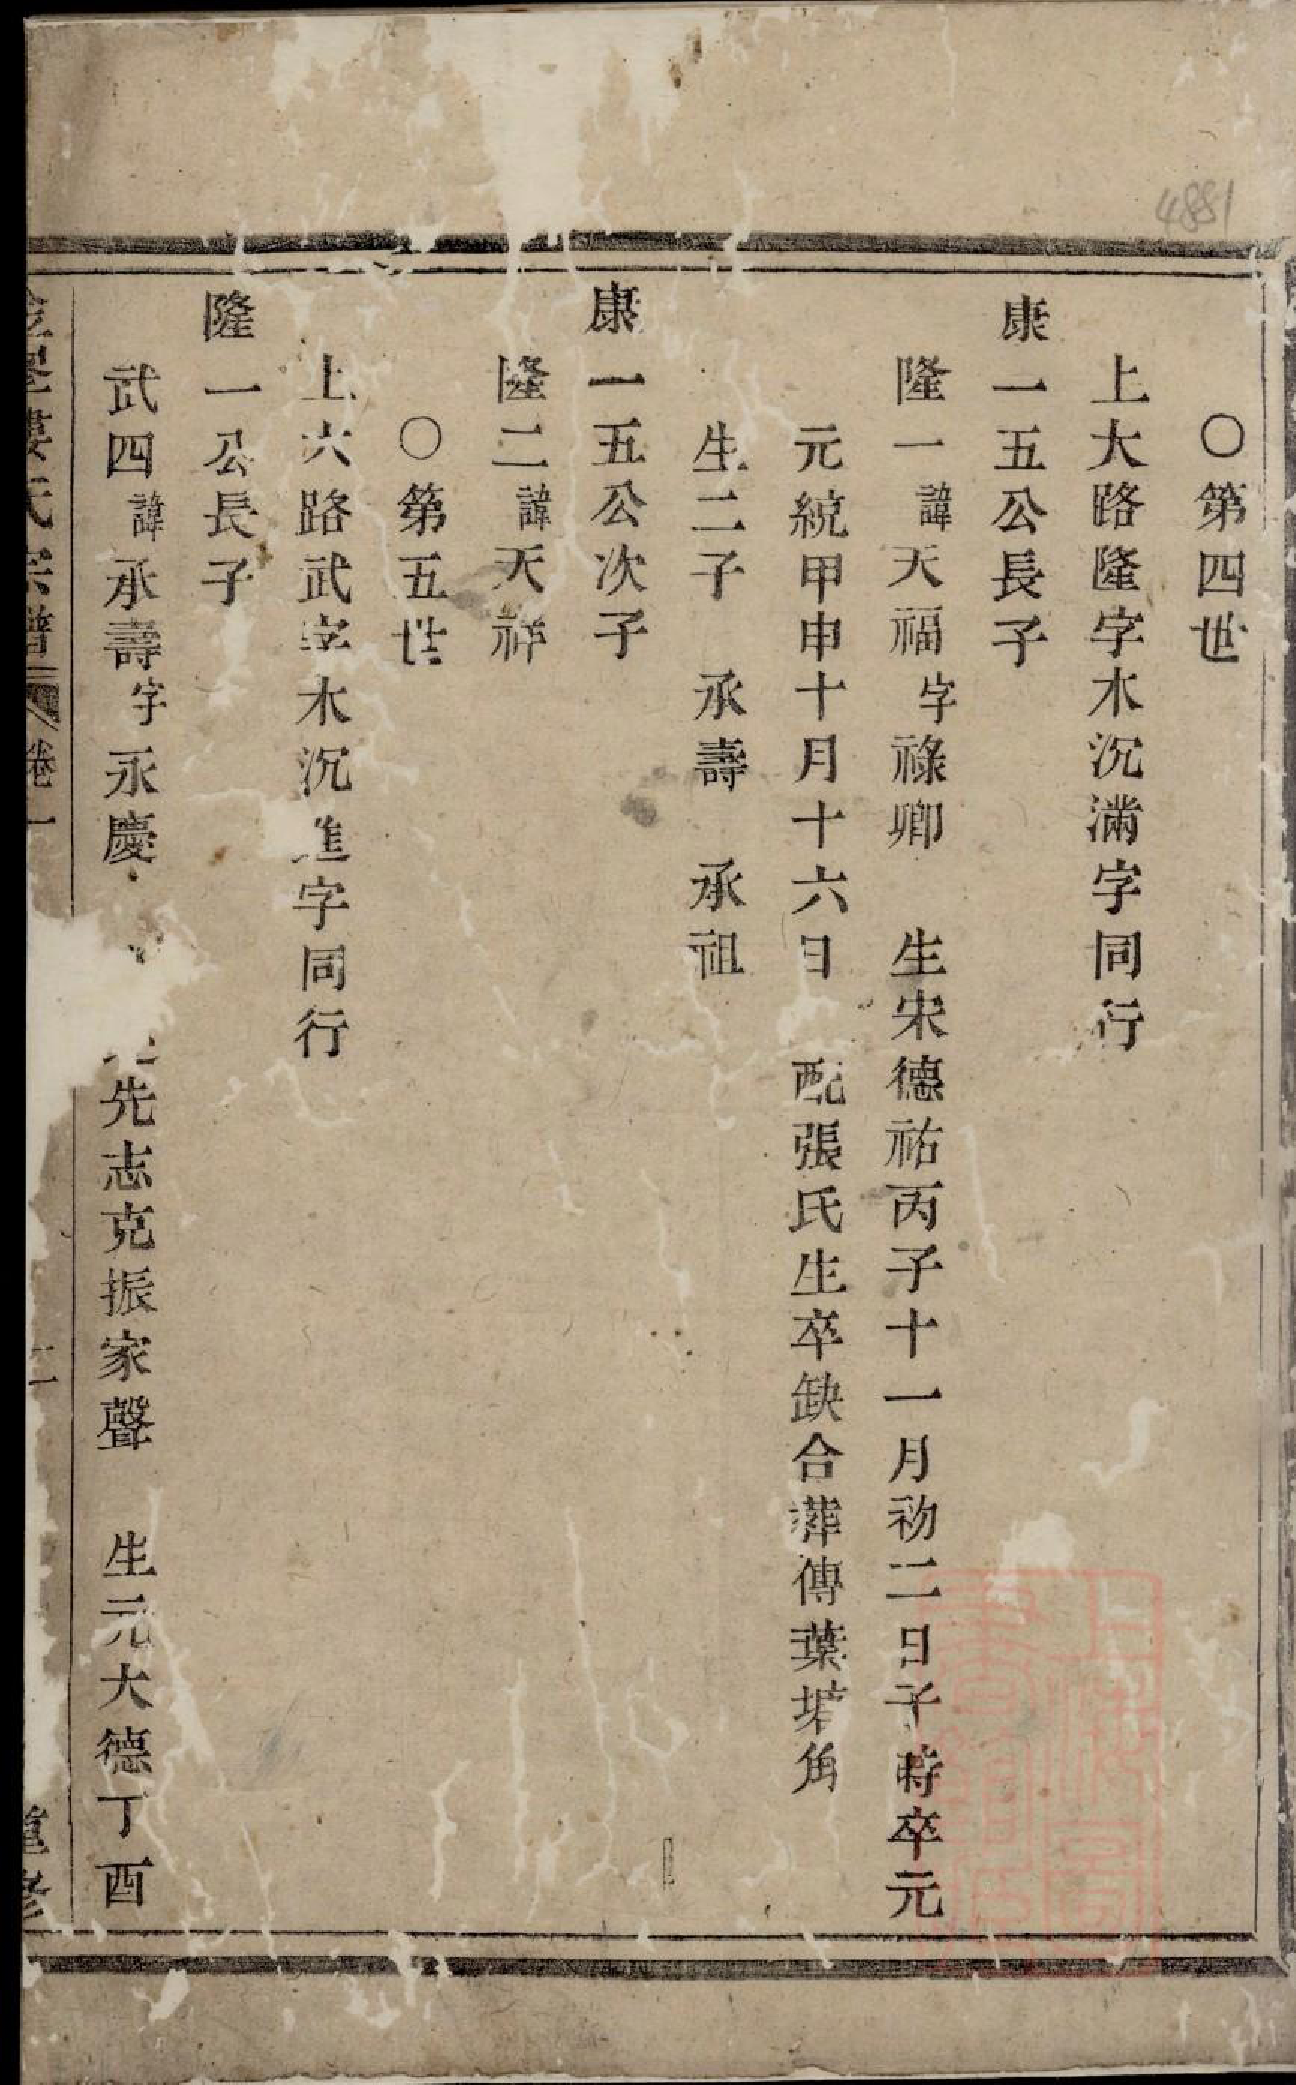 4881
○第四世
上大路隆字木沉滿字同行
康一五公長子
隆一諱天福字祿卿 生宋德祐丙子十一月初二日子時卒元
元統甲申十月十六日 配張氏生卒缺合葬傳葉塔角
生二子 承壽 承祖
康一五公次子
隆二諱天祥
○第五世
上大路武字木沉進字同行
隆一公長子
武四諱承壽字永慶 先志克振家聲 生元大德丁酉
婁氏宗譜 卷一 二 重修
上海圖書館藏